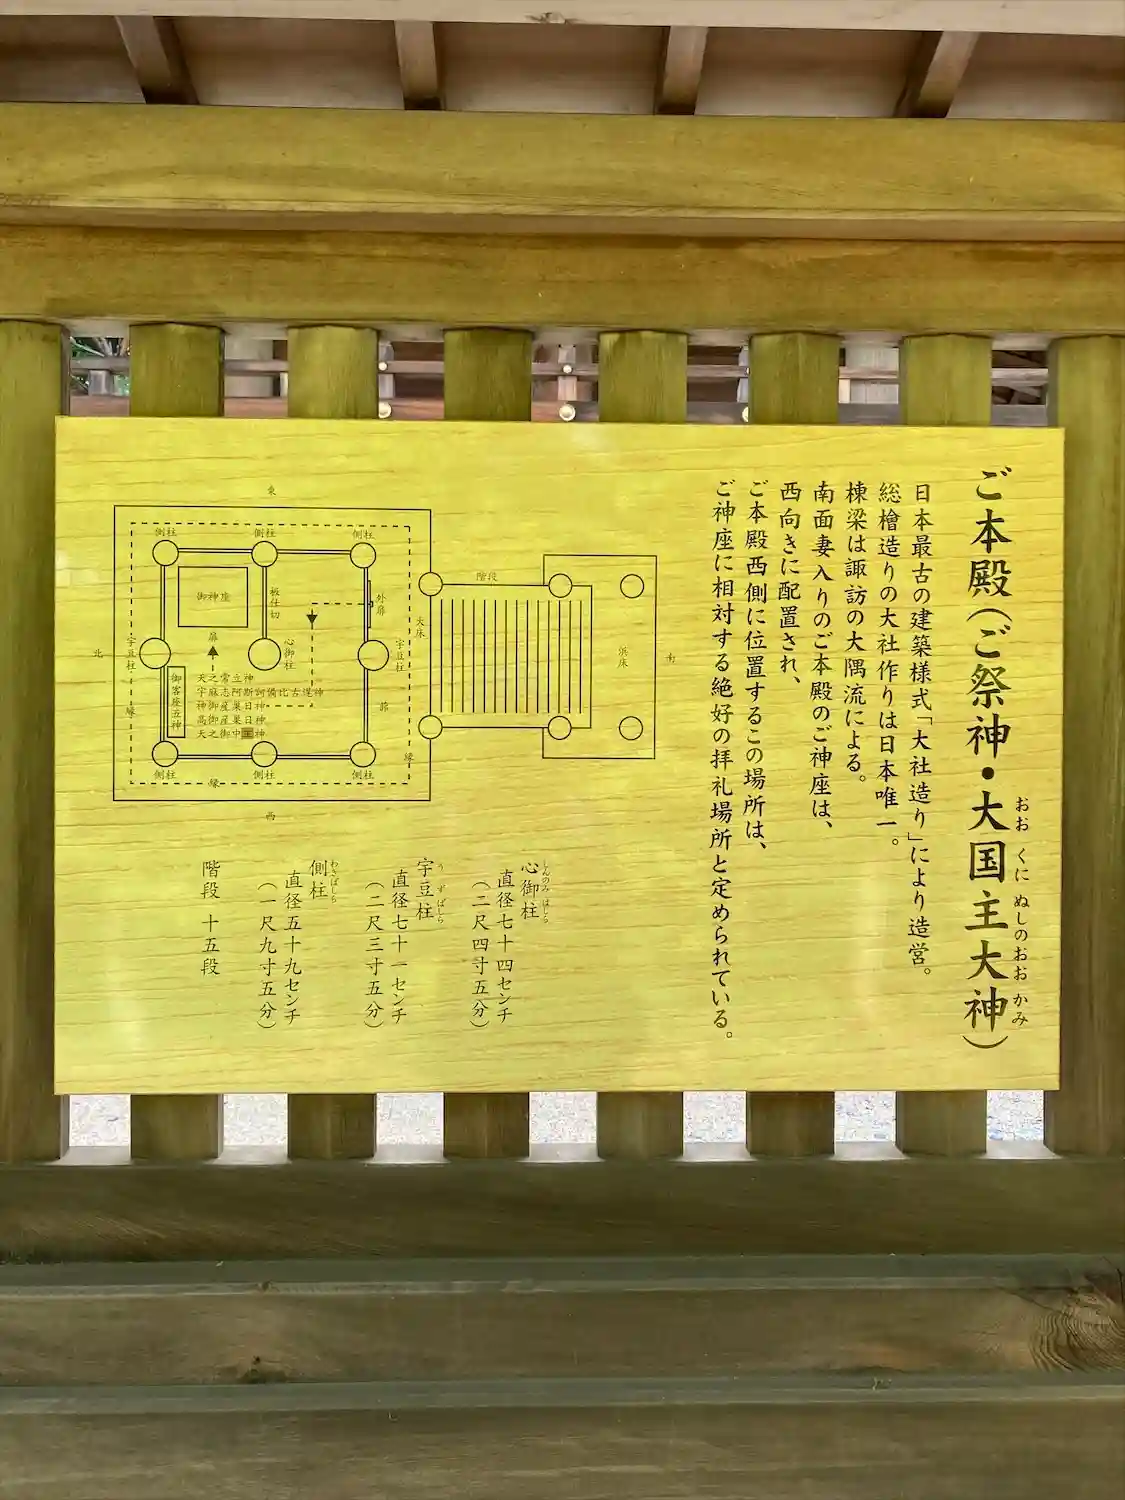 ご本殿(ご祭神・大国主大神)
おお くに ぬしのおお かみ
日本最古の建築様式「大社造り」により造営。
総檜造りの大社作りは日本唯一。
棟梁は諏訪の大隅流による。
南面妻入りのご本殿のご神座は、
西向きに配置され、
ご本殿西側に位置するこの場所は、
ご神座に相対する絶好の拝礼場所と定められている。
東
側柱
側柱
側柱
御神座
板仕切
外扉
階段
大床
浜床
南
北
宇豆柱
扉
心御柱
宇豆柱
御客座五神
天之常立神
宇麻志阿斯訶備比古遅神
神御産巣日神
高御産巣日神
天之御中主神
縁
縁
側柱
側柱
側柱
縁
西
心御柱
しんのみ はしら
直径七十四センチ
(二尺四寸五分)
宇豆柱
う ず ばしら
直径七十一センチ
(二尺三寸五分)
側柱
わきばしら
直径五十九センチ
(一尺九寸五分)
階段 十五段